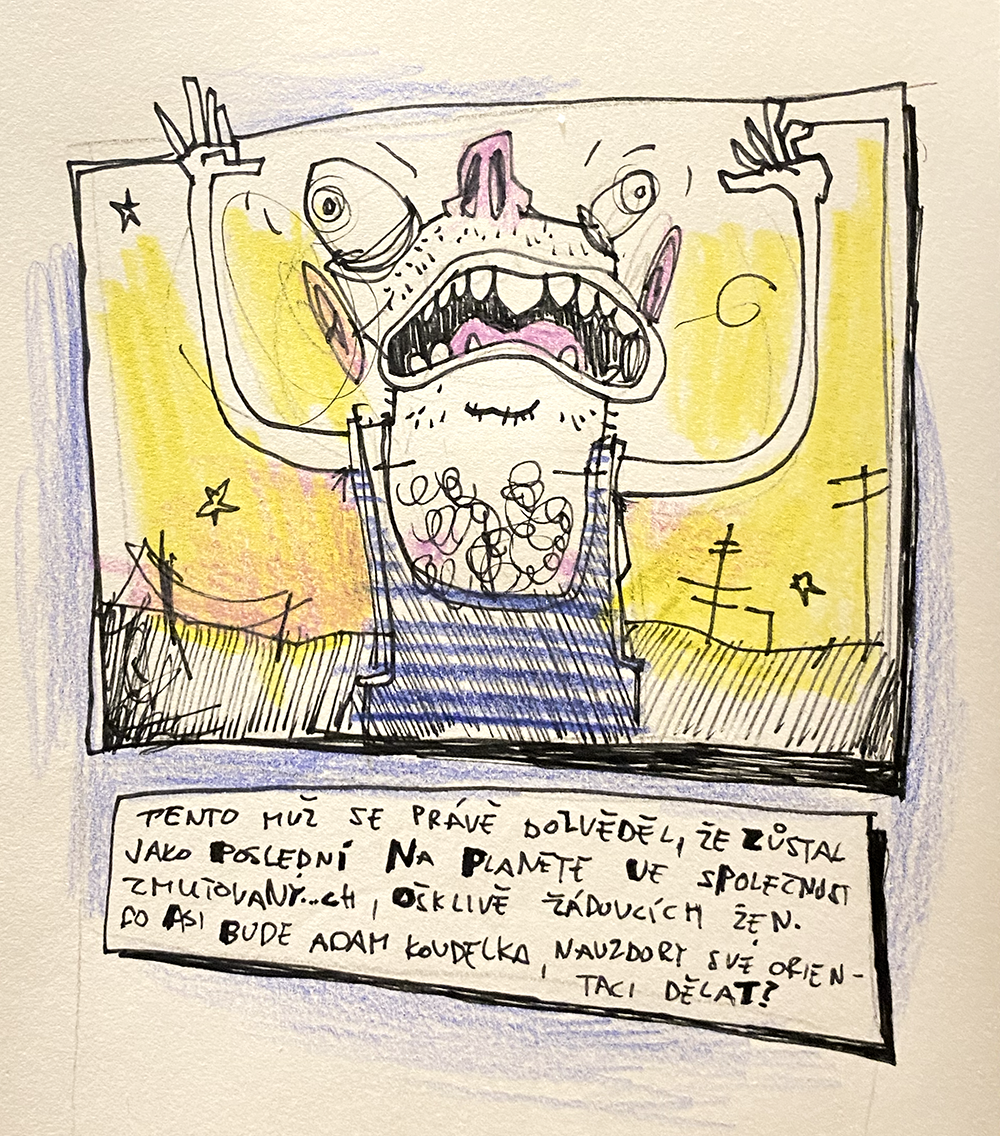 TENTO MUŽ SE PRÁVĚ DOZVĚDĚL, ŽE ZŮSTAL
JAKO POSLEDNÍ NA PLANETĚ VE SPOLEČNOSTI
ZMUTOVANÝ...CH, OŠKLIVĚ ŽÁDOUCÍCH ŽEN.
CO ASI BUDE ADAM KOUDELKA, NAVZDORY SVÉ ORIEN-
TACI DĚLAT?